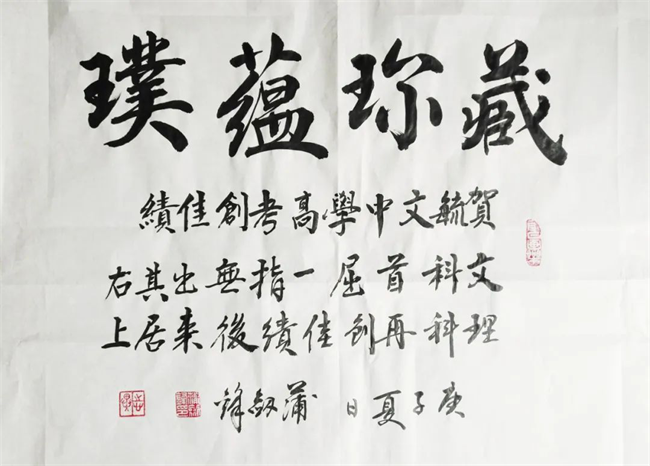 藏珍蘊璞
賀毓文中學高考創佳績
文科首屈一指無出其右
理科再创佳績後来居上
庚子夏日 蒲劍鋒